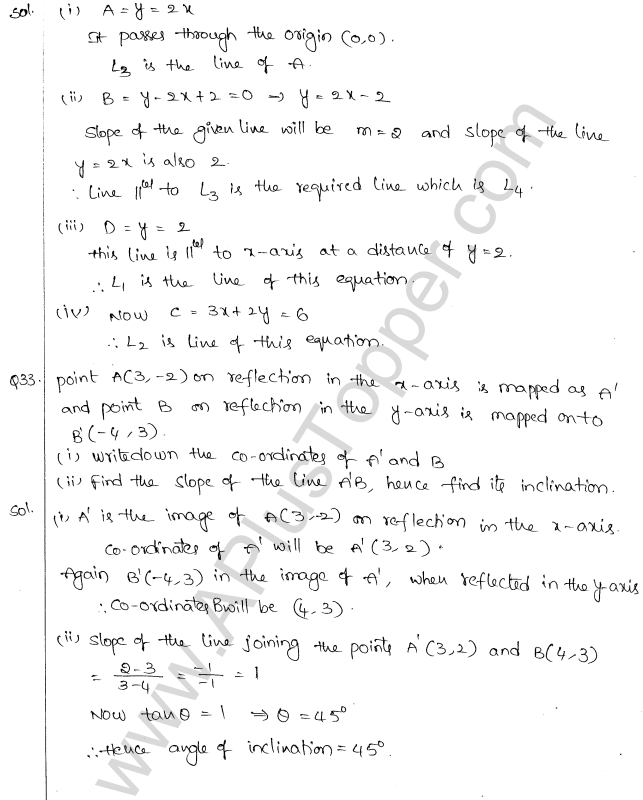 Sol. (i) A = y = 2x
It passes through the origin (0,0).
L3 is the line of A.
(ii) B = y - 2x + 2 = 0 → y = 2x - 2
Slope of the given line will be m = 2 and slope of the line
y = 2x is also 2.
∴ Line ||lel to L3 is the required line which is L4.
(iii) D = y = 2
this line is ||lel to x-axis at a distance of y = 2.
∴ L1 is the line of this equation.
(iv) Now C = 3x + 2y = 6
∴ L2 is line of this equation.
Q33. point A(3,-2) on reflection in the x-axis is mapped as A'
and point B on reflection in the y-axis is mapped onto
B'(-4,3).
(i) write down the co-ordinates of A' and B
(ii) find the slope of the line A'B, hence find its inclination.
Sol. (i) A' is the image of A(3,-2) on reflection in the x-axis.
Co-ordinates of A' will be A'(3,2).
Again B'(-4,3) in the image of A', when reflected in the y axis
∴ Co-ordinates B will be (4,3).
(ii) Slope of the line joining the points A'(3,2) and B(4,3)
= 2-3 / 3-4 = -1 / -1 = 1
Now tan θ = 1 ⇒ θ = 45°
∴ Hence angle of inclination = 45°.
www.APlusTopper.com